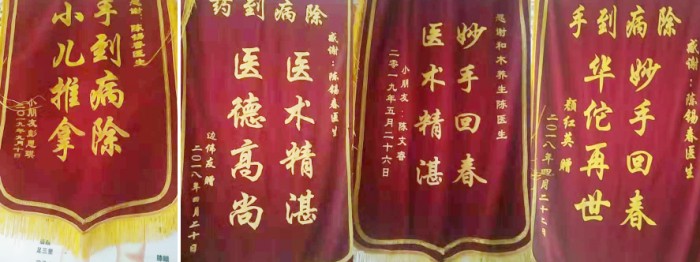 感谢:陈锡春医生
手到病除
小儿推拿
小朋友彭思琪
药到病除
感谢:陈锡春医生
医术精湛
医德高尚
边伟友 赠
二〇一八年四月二十日
感谢和木养生陈医生
妙手回春
医术精湛
小朋友:陈文睿
二零一九年五月二十六日
手到病除
感谢:陈锡春医生
妙手回春
华佗再世
颜红英 赠
二〇一八年四月二十二日